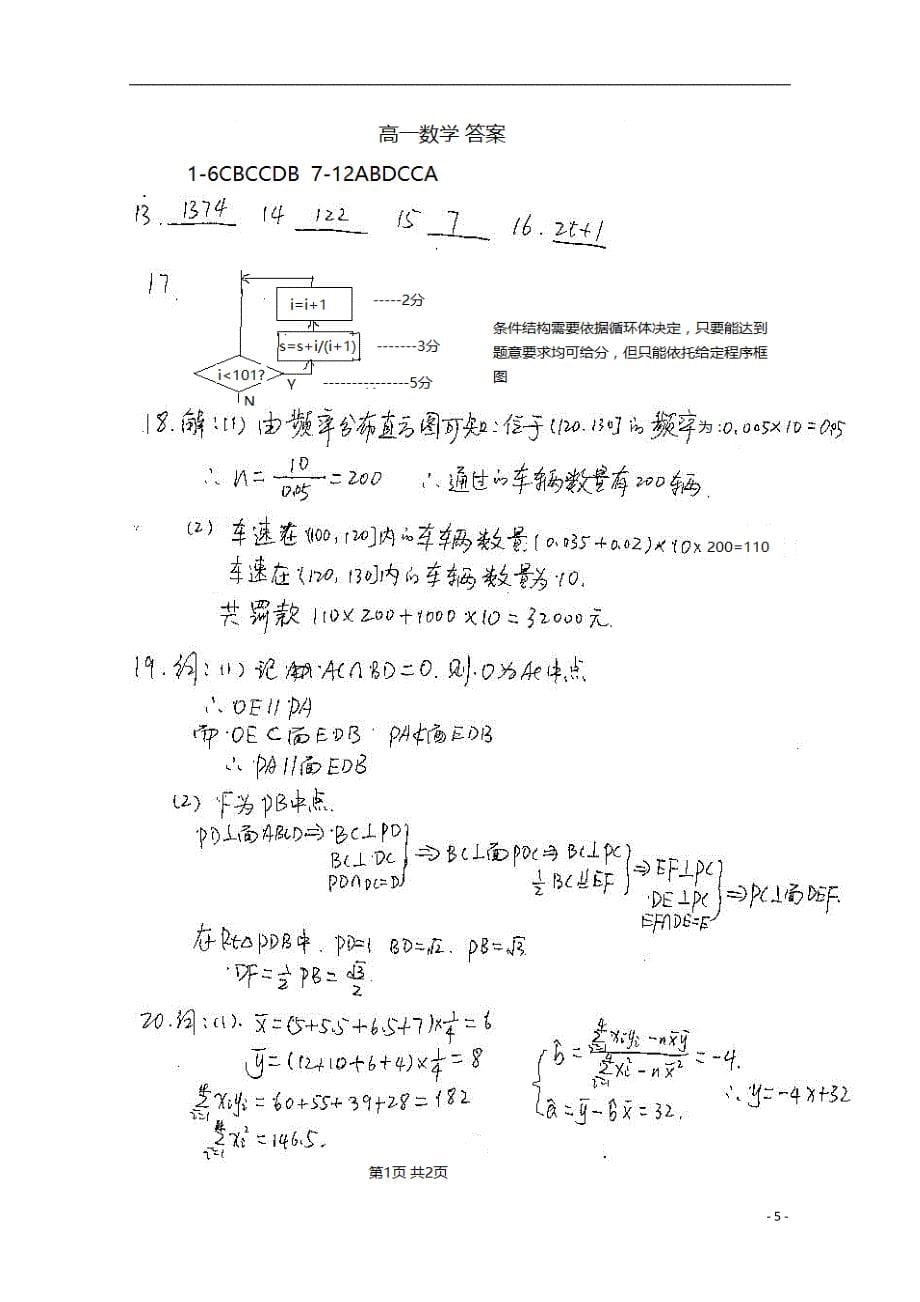 高一数学 答案
1-6CBCCDB 7-12ABDCCA
13. 1374 14 122 15 7 16. 2t+1
17.
i=i+1 -----2分
s=s+i/(i+1) -------3分
i<101? Y ---------------5分
N
条件结构需要依据循环体决定，只要能达到
题意要求均可给分，但只能依托给定程序框
图
18.解:(1) 由频率分布直方图可知:位于(120.130]的频率为:0.005×10=0.05
∴n=10/0.05=200 ∴通过的车辆数量有200辆.
(2) 车速在(100,120]内的车辆数量(0.035+0.02)×10×200=110
车速在(120,130]内的车辆数量为10.
共罚款 110×200+1000×10=32000元.
19.解:(1)记 AC∩BD=O.则O为AC中点
∴OE∥PA
而OE⊂面EDB PA⊄面EDB
∴PA∥面EDB
(2) F为PB中点.
PD⊥面ABCD⇒BC⊥PD
BC⊥DC
PD∩DC=D
⇒BC⊥面PDC⇒BC⊥PC
½BC∥EF
⇒EF⊥PC
DE⊥PC
EF∩DE=E
⇒PC⊥面DEF.
在Rt△PDB中.PD=1 BD=√2. PB=√3.
DF=½PB=√3/2.
20.解:(1). x̄=(5+5.5+6.5+7)×¼=6
ȳ=(12+10+6+4)×¼=8
∑xiyi=60+55+39+28=182
∑xi²=146.5.
b̂=(∑xiyi-nx̄ȳ)/(∑xi²-nx̄²)=-4.
â=ȳ-b̂x̄=32.
∴y=-4x+32
第1页 共2页
- 5 -